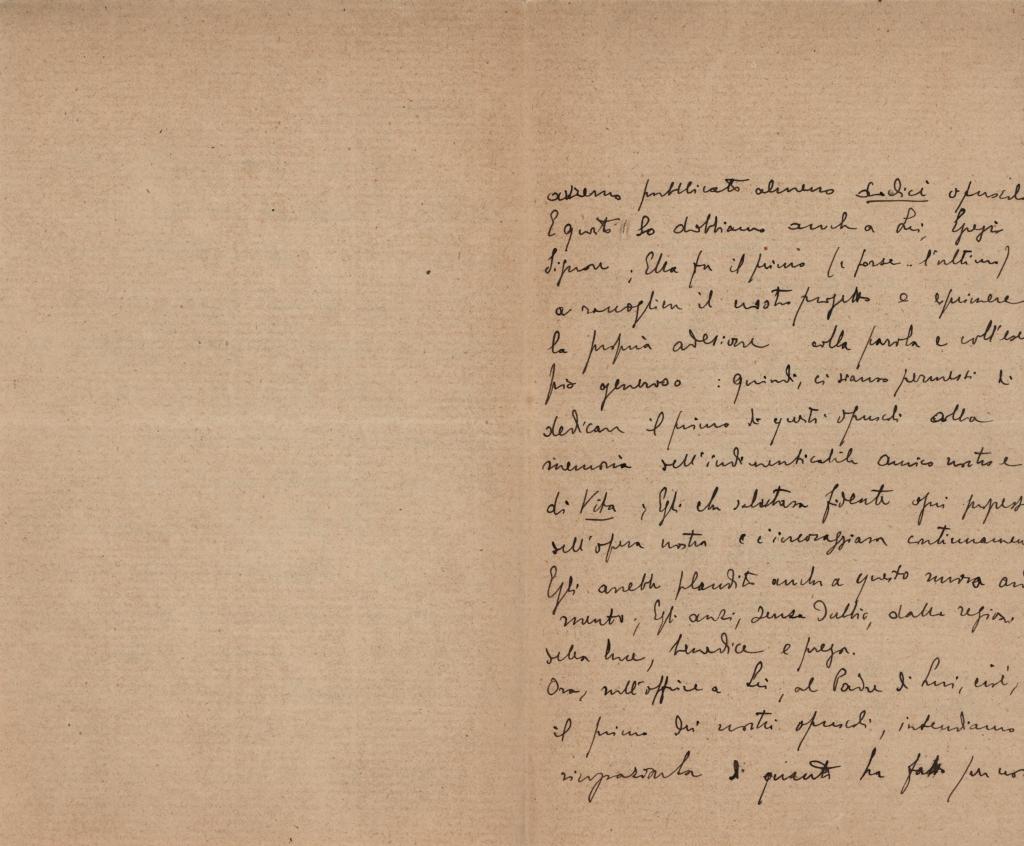 avremo pubblicato almeno dodici opuscol
E questo lo dobbiamo anche a Lei, Egregio
Signore; Ella fu il primo (e forse.. l'ultimo)
a raccogliere il nostro progetto e esprimere
la propria adesione colla parola e coll'ese
pio generoso: quindi, ci siamo permessi di
dedicare il primo di questi opuscoli alla
memoria dell'indimenticabile amico nostro e
di Vita; Egli che salutava fidente ogni
dell'opera nostra e c'incoraggiava continuamen
Egli avrebbe plaudito anche a questo nuovo
mento; Egli anzi, senza dubbio, dalla regione
della luce, benedice e prega.
Ora, nell'offrire a Lei, al Padre di Lui, così,
il primo dei nostri opuscoli, intendiamo
ringraziarla di quanto ha fatto per nos